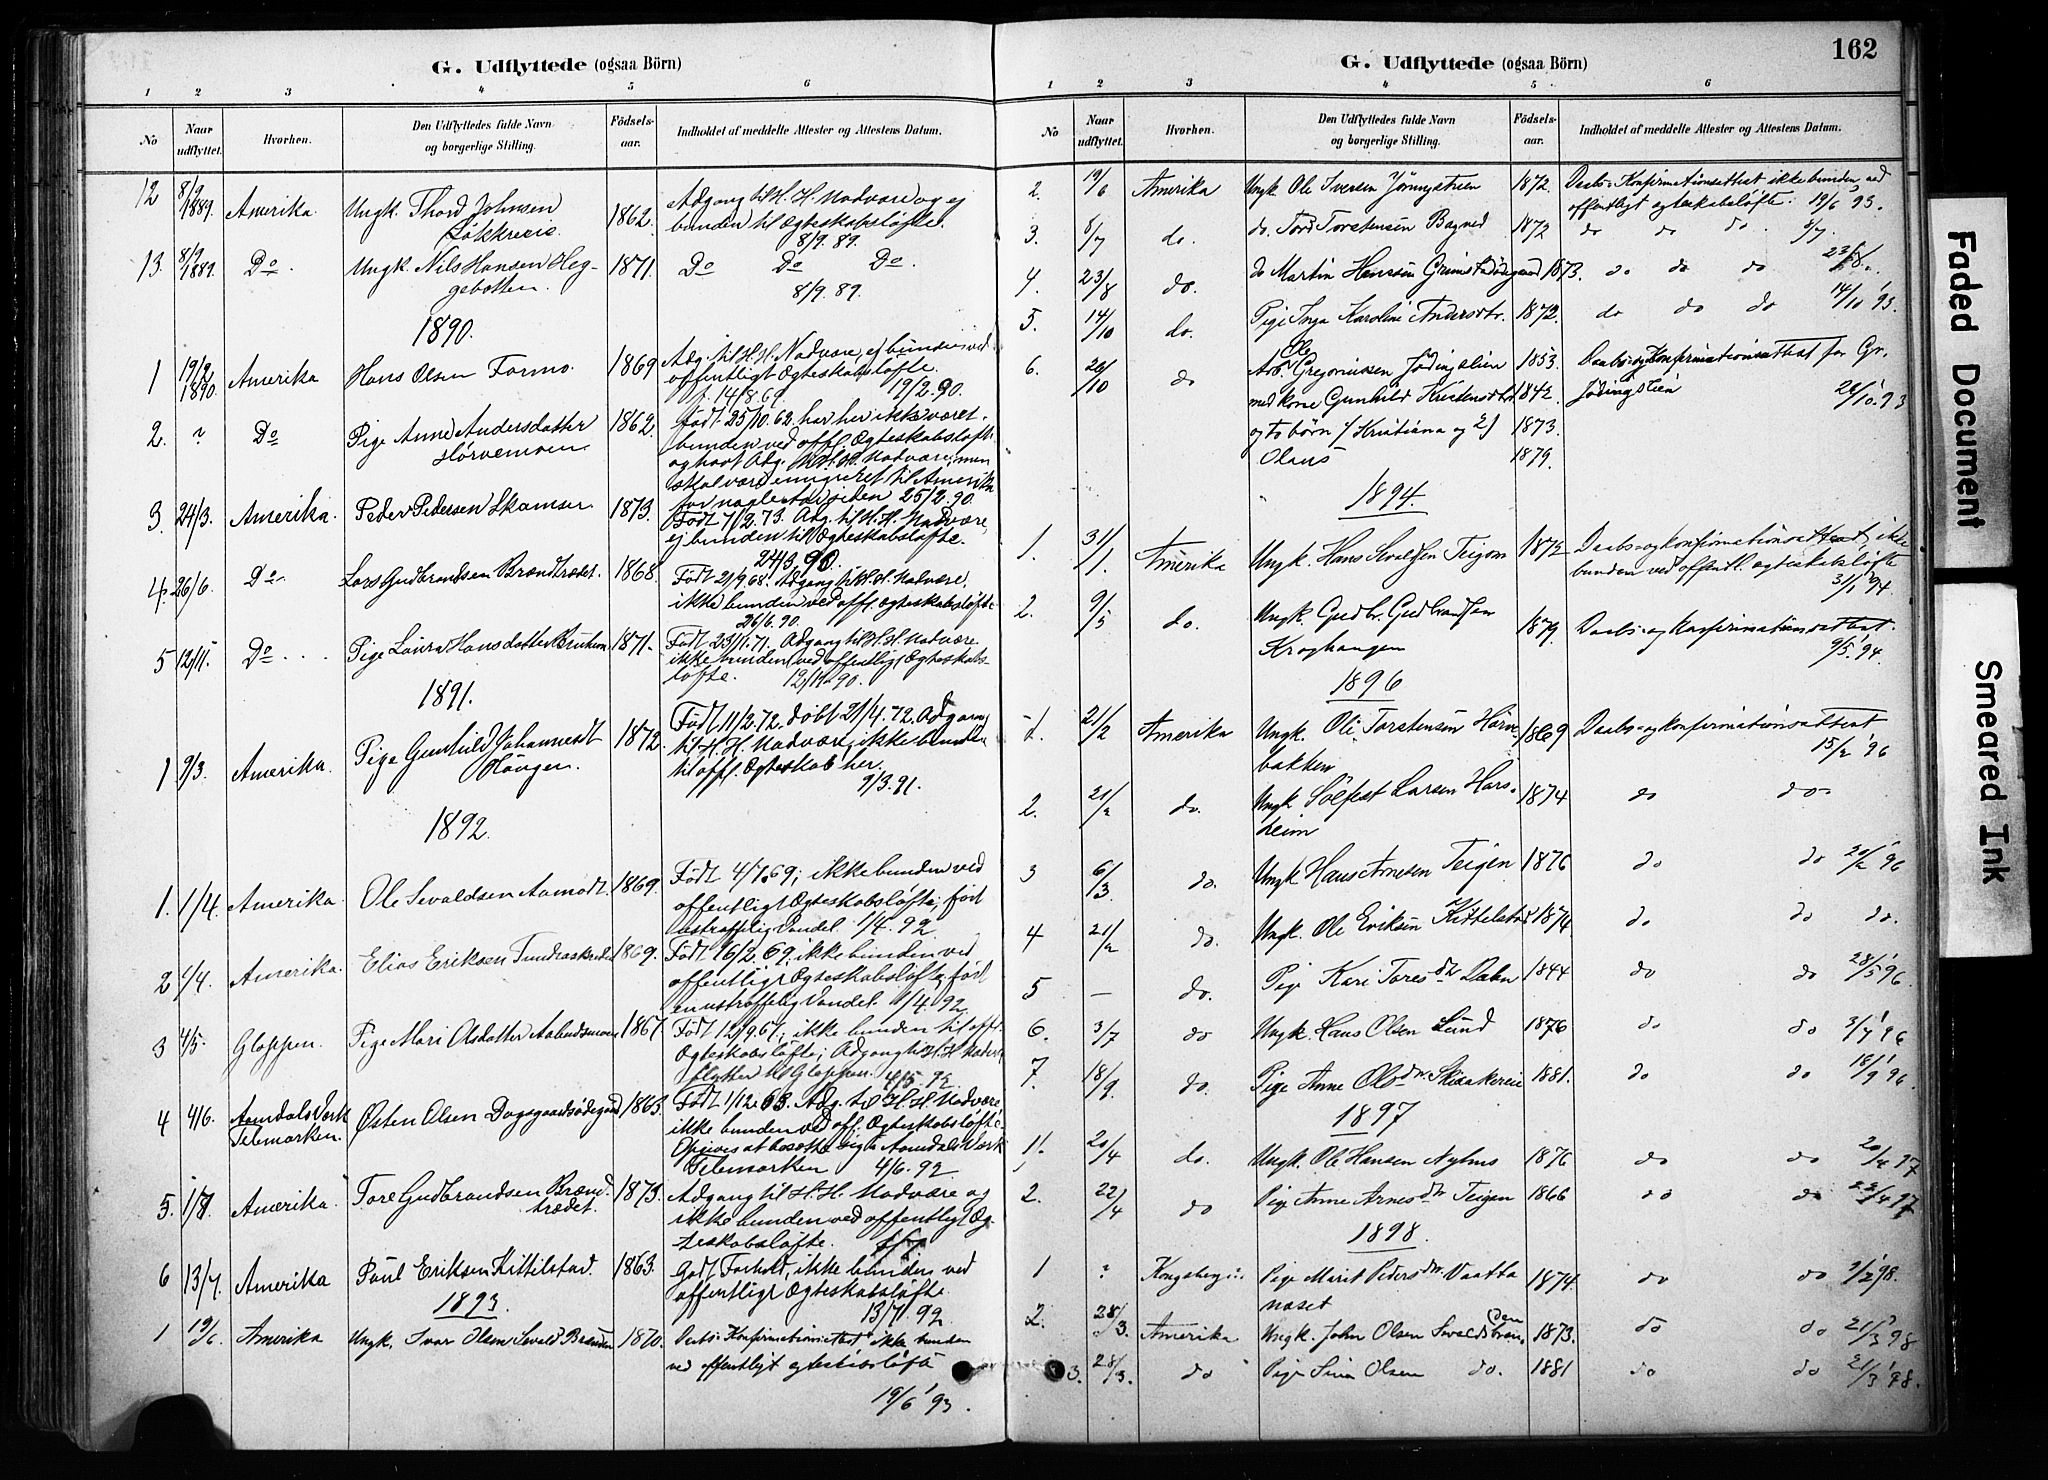 G. Udflyttede (ogsaa Börn)
1 2 3 4 5 6
No Naar udflyttet. Hvorhen. Den Udflyttedes fulde Navn og borgerlige Stilling. Födsels-aar. Indholdet af meddelte Attester og Attestens Datum.
12 8/9 1889. Amerika. Ungk. Thord Johnsen 1862. Adgang til H. H. Nadvære og ej
bunden til Ægteskabsløfte.
8/9. 89.
13. 8/9 1889. Do. Ungk. Nils Hansen Heg- 1871. Do Do Do.
gebotten. 8/9. 89.
1890.
1 19/2 1890. Amerika Hans Olsen Formo. 1869 Adg. til H. H. Nadvære, ej bunden ved
offentligt Ægteskabsløfte.
f. 14/8. 69. 19/2. 90.
2. ? Do Pige Anne Andersdatter 1862. Født 25/10. 62. har her ikke været
bunden ved offl. Ægteskabsløfte
og havt Adg. til H. H. Nadvære, men
skal være emigreret til Amerika
for nogle siden 25/2. 90.
3. 24/3. Amerika. Peder Pedersen Skamser 1873. Født 7/2. 73. Adg. til H. H. Nadvære,
ej bunden til Ægteskabsløfte.
24/3. 90.
4. 26/6. Do. Lars Gudbrandsen Brændtrædet. 1868. Født 21/9. 68. Adgang til H. H. Nadvære.
ikke bunden ved off. Ægteskabsløfte
26/6. 90.
5 12/11. Do... Pige Laura Hansdatter 1871. Født 23/1. 71. Adgang til H. H. Nadvære.
ikke bunden ved offentlig Ægteskabs-
løfte. 12/11. 90.
1891.
1 9/3. Amerika. Pige Gunhild Johannesdt 1872. Født 11/2. 72. døbt 21/4. 72. Adgang
Haugen. til H. H. Nadvære, ikke bunden
til offl. Ægteskab her.
9/3. 91.
1892.
1. 1/4. Amerika. Ole Sevaldsen Aamodt. 1869. Født 4/7. 69; ikke bunden ved
offentligt Ægteskabsløfte; ført
ustraffelig Vandel. 1/4. 92
2 1/4. Amerika. Elias Eriksen 1869. Født 16/2. 69. ikke bunden ved
offentligt Ægteskabsløfte, ført
en ustraffelig Vandel. 1/4. 92
3 4/5. Gloppen. Pige Mari Olsdatter 1867. Født 12/9. 67; ikke bunden til offl.
Ægteskabsløfte; Adgang til H. H. Nadvære
flytter til Gloppen. 4/5. 92.
4 4/6. Aamdals Værk Østen Olsen Dagsgaardsødegaard 1863. Født 1/12. 63. Adg. til H. H. Nadvære
Telemarken. ikke bunden ved off. Ægteskabsløfte.
Opgives at bosætte sig i Aamdals Værk
Telemarken 4/6. 92
5. 1/7. Amerika. Tore Gudbrandsen Brænd- 1873. Adgang til H. H. Nadvære og
trædet. ikke bunden ved offentligt Æg-
teskabsløfte. 1/7
6 13/7. Amerika Paul Eriksen Kittilstad. 1863. Godt Forhold, ikke bunden ved
offentligt Ægteskabsløfte
1893. 13/7. 92.
1 19/6. Amerika Ungk. Ivar Olsen 1870. Daabs- Konfirmationsattest ikke bunden
ved offentligt ægteskabsløfte
19/6 93.
162
G. Udflyttede (ogsaa Börn)
1 2 3 4 5 6
No Naar udflyttet. Hvorhen. Den Udflyttedes fulde Navn og borgerlige Stilling. Födsels-aar. Indholdet af meddelte Attester og Attestens Datum.
2. 19/6 Amerika Ungk. Ole Iversen 1872. Daabs- Konfirmationsattest ikke bunden ved
offentligt ægteskabsløfte. 19/6 93.
3. 8/7 do. do. Tord Torstensen 1872 do do do. 8/7.
4. 23/8 do. do Martin Hanssen Grimstadødegaard 1873. do do do 23/8
5. 14/10 do. Pige Inga Karoline Andersdtr. 1872. do do do 14/10 93.
6. 26/10 do Arb. Ole Gregoriussen 1853. Daabs- og Konfirmationsattest for Gr.
med kone Gunhild Kristensdtr 1842. 26/10. 93
og to børn 1) Kristiana og 2) 1873.
Olaus 1879.
1894.
1. 31/1. Amerika Ungk. Hans Sevaldsen Teigom 1872 Daabs- og konfirmationsattest, ikke
bunden ved offentl. ægteskabsløfte
31/1 94.
2. 9/5 do. Ungk. Gudbr. Gudbrandsen 1879. Daabs- og konfirmationsattest.
Kroghaugen 9/5. 94.
1896
1. 21/2 Amerika Ungk. Ole Torstensen 1869 Daabs- og konfirmationsattest
bakken 15/2 96
2. 21/2 do. Ungk. Sølfest Larsen Hars- 1874 do do
heim
3 6/3. do. Ungk Hans Arnesen Teigen 1876 do do 20/2 96
4 21/2 do. Ungk. Ole Eriksen Kittelstad 1874 do do do.
5 — do. Pige Kari Toresdtr Dalen 1844 do do 28/5 96.
6. 3/7 do Ungk. Hans Olsen Lund 1876 do do 3/7 96
7. 18/9. do. Pige Anne Olsdtr. Skiaakereie 1881. do do 18/9 96.
1897
1. 20/4 do. Ungk. Ole Hansen 1876 do do 20/4 97
2. 22/4 do Pige Anne Arnesdtr Teigen 1866 do do 22/4 97
1898
1 ? Kongsberg Pige Marit Pedersdtr. 1874. do do 98.
naset
2. 28/3. Amerika Ungk. John Olsen 1873. do do 21/3 98
3. 28/3. do Pige Sina Olsen do. 1881 do do 21/3 98.
Faded Document
Smeared Ink